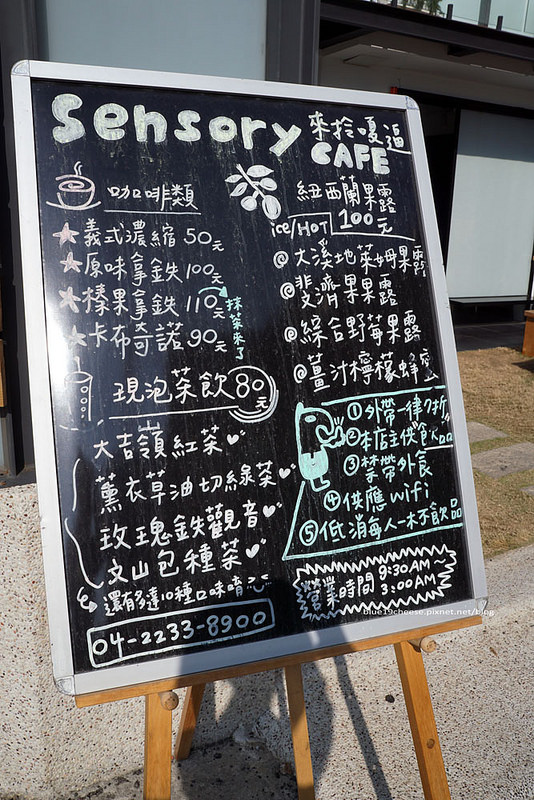 Sensory
來拎嗄逼
CAFE
咖啡類
義式濃縮 50元
原味拿鐵 100元
榛果拿鐵 110元
抹茶來了
卡布奇諾 90元
現泡茶飲 80元
大吉嶺紅茶
薰衣草油切綠茶
玫瑰鐵觀音
文山包種茶
還有多達10種口味唷
04-2233-8900
紐西蘭果露
ice/HOT 100元
@大溪地萊姆果露
@斐濟果果露
@綜合野莓果露
@薑汁檸檬蜂蜜
①外帶一律9折
②本店主供飲品
③禁帶外食
④供應wifi
⑤低消每人一杯飲品
營業時間 9:30AM~
3:00AM
blue19cheese.pixnet.net/blog